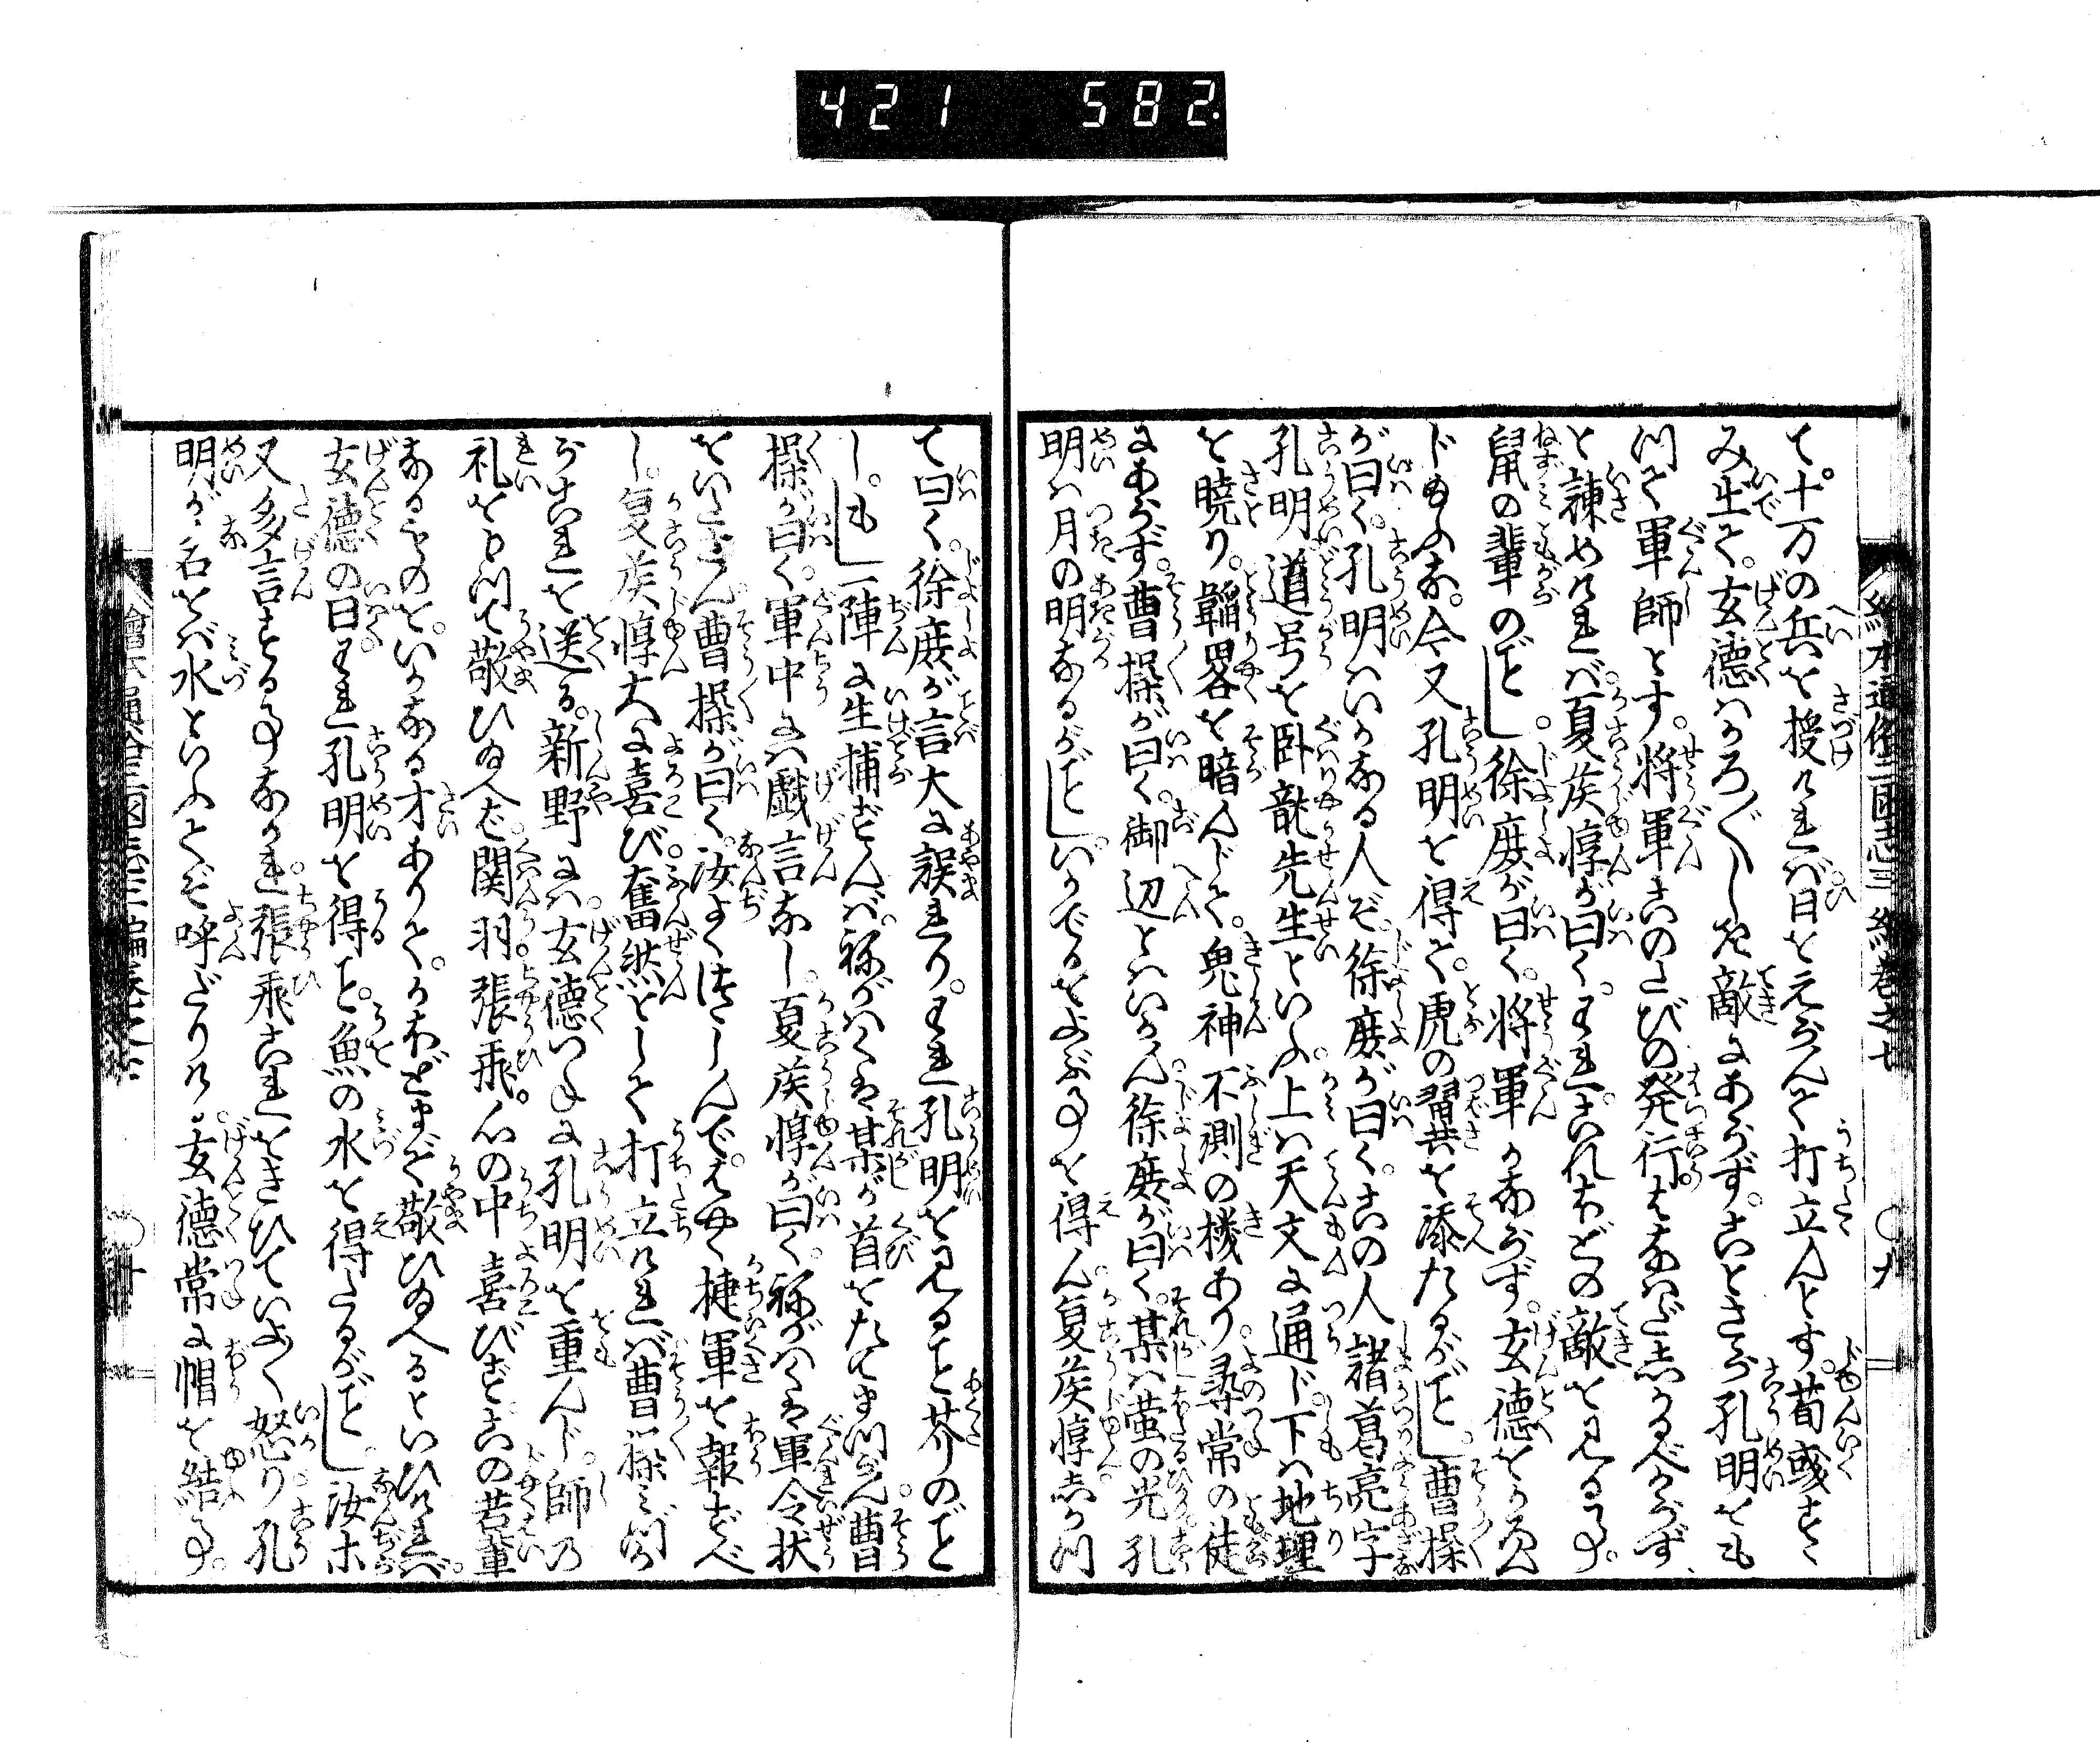 421 582.
て。十万の兵を授ければ日をえらんで打立んとす。荀彧すゝ
み出て。玄徳はかろ〴〵しき敵にあらず。ことさら孔明をも
つて軍師とす。将軍このたびの発行はなはだしかるべからず
と諫めければ。夏侯惇が曰く。われこれほどの敵を見る事。
鼠の輩のごとし。徐庶が曰く。将軍かならず。玄徳をかろん
じ玉ふな。今又孔明を得て。虎の翼を添たるがごとし。曹操
が曰く。孔明はいかなる人ぞ。徐庶が曰く。この人諸葛亮字
孔明道号を臥龍先生といふ。上は天文に通じ。下は地理
を暁り。韜略を暗んじて。鬼神不測の機あり。尋常の徒
にあらず。曹操が曰く。御辺とはいかん。徐庶が曰く。某は蛍の光孔
明は月の明なるがごとし。いかでかをよぶ事を得ん。夏侯惇しかつ
て曰く。徐庶が言大に誤れり。われ孔明を見ること芥のごと
し。もし一陣に生捕ずんば。ねがはくは某が首をたてまつらん。曹
操が曰く。軍中には戯言なし。夏侯惇が曰く。ねがはくは軍令状
をいださん。曹操が曰く。汝よくはげしんで。はやく捷軍を報ずべ
し。夏侯惇大に喜び奮然として打立ければ。曹操みづか
らこれを送る。新野には。玄徳いよ〳〵孔明を重んじ。師の
礼をもつて敬ひ玉へば。関羽張飛。心の中喜びずこの若輩
なるものを。いかなる才ありて。かほどまで敬ひ玉へるといひければ。
玄徳の曰われ孔明を得ること。魚の水を得たるがごとし。汝ホ
又多言する事なかれ。張飛これをきひていよ〳〵怒り孔
明が名をば水といふとぞ呼だりけ。玄徳常に帽を結事。